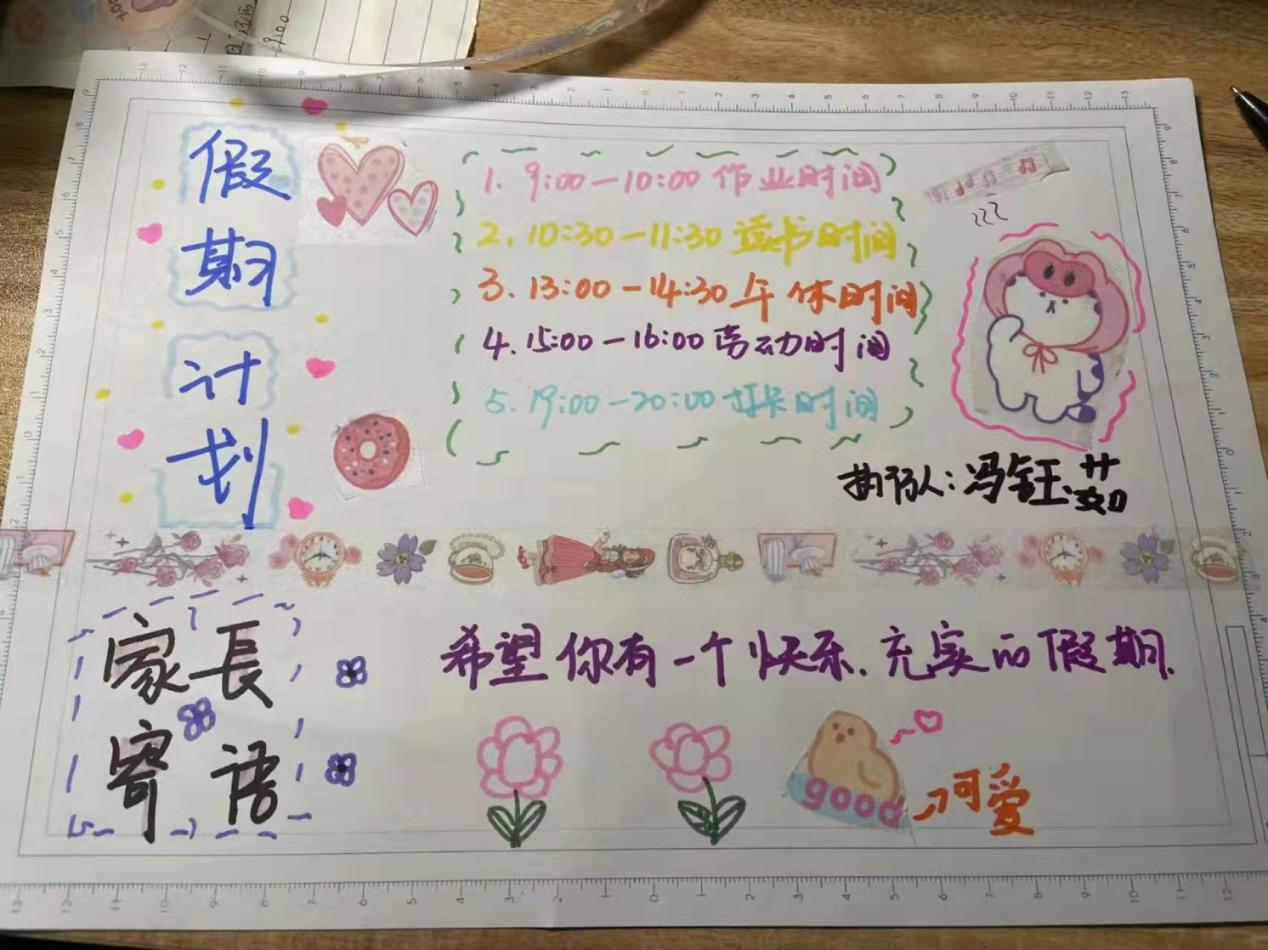 假期计划
1. 9:00—10:00 作业时间
2. 10:30—11:30 读书时间
3. 13:00—14:30 午休时间
4. 15:00—16:00 劳动时间
5. 19:00—20:00 打卡时间
执行人：冯钰茹
家長
寄语
希望你有一个快乐、充实的假期.
good
可爱